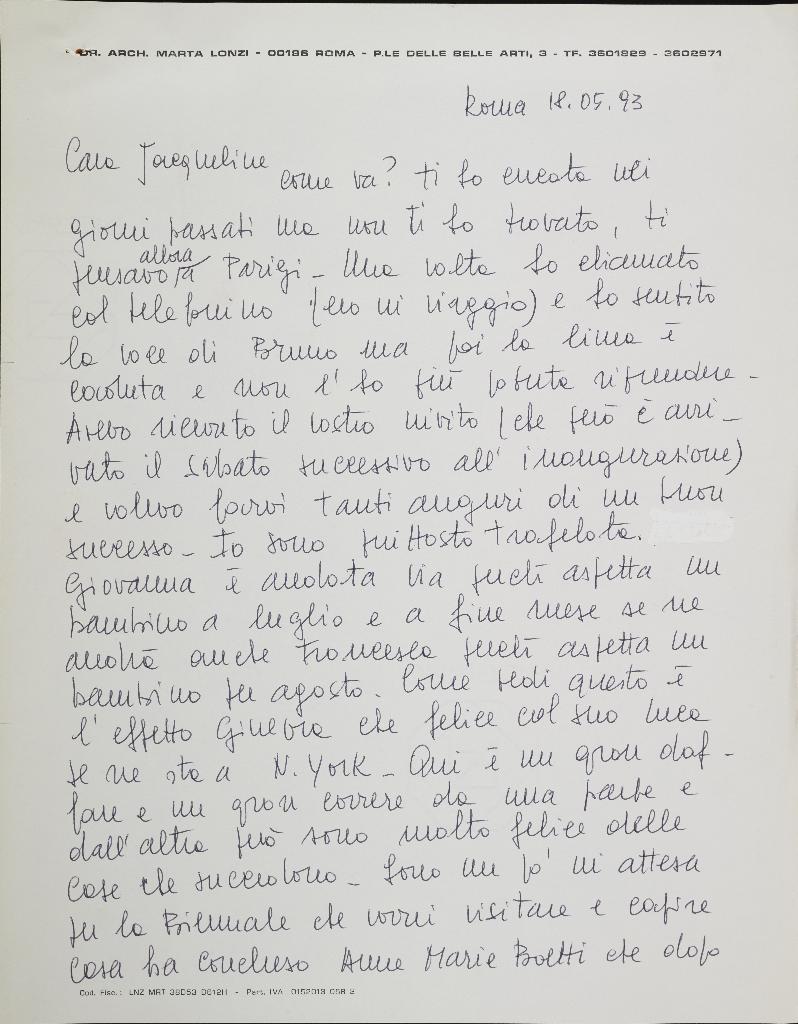 DR. ARCH. MARTA LONZI - 00196 ROMA - P.LE DELLE BELLE ARTI, 3 - TF. 3601829 - 3602971
Roma 18.05.93
Cara Jacqueline
come va? ti ho cercata nei
giorni passati ma non ti ho trovato, ti
allora
pensavo a Parigi - Una volta ho chiamato
col telefonino (ero in viaggio) e ho sentito
la voce di Bruno ma poi la linea è
caduta e non l'ho più potuta riprendere -
Avevo ricevuto il vostro invito (che però è arri-
vato il sabato successivo all'inaugurazione)
e volevo farvi tanti auguri di un buon
successo - Io sono piuttosto trafelata.
Giovanna è andata via perché aspetta un
bambino a luglio e a fine mese se ne
andrà anche Francesca perché aspetta un
bambino per agosto. Come vedi questo è
l'effetto Ginevra che felice col suo Luca
se ne sta a N. York - Qui è un gran daf-
fare e un gran correre da una parte e
dall'altra però sono molto felice delle
cose che succedono - Sono un po' in attesa
per la Biennale che vorrei visitare e capire
cosa ha concluso Anne Marie Boetti che dopo
Cod. Fisc.: LNZ MRT 38D53 D612H - Part. IVA 0152013 058 2